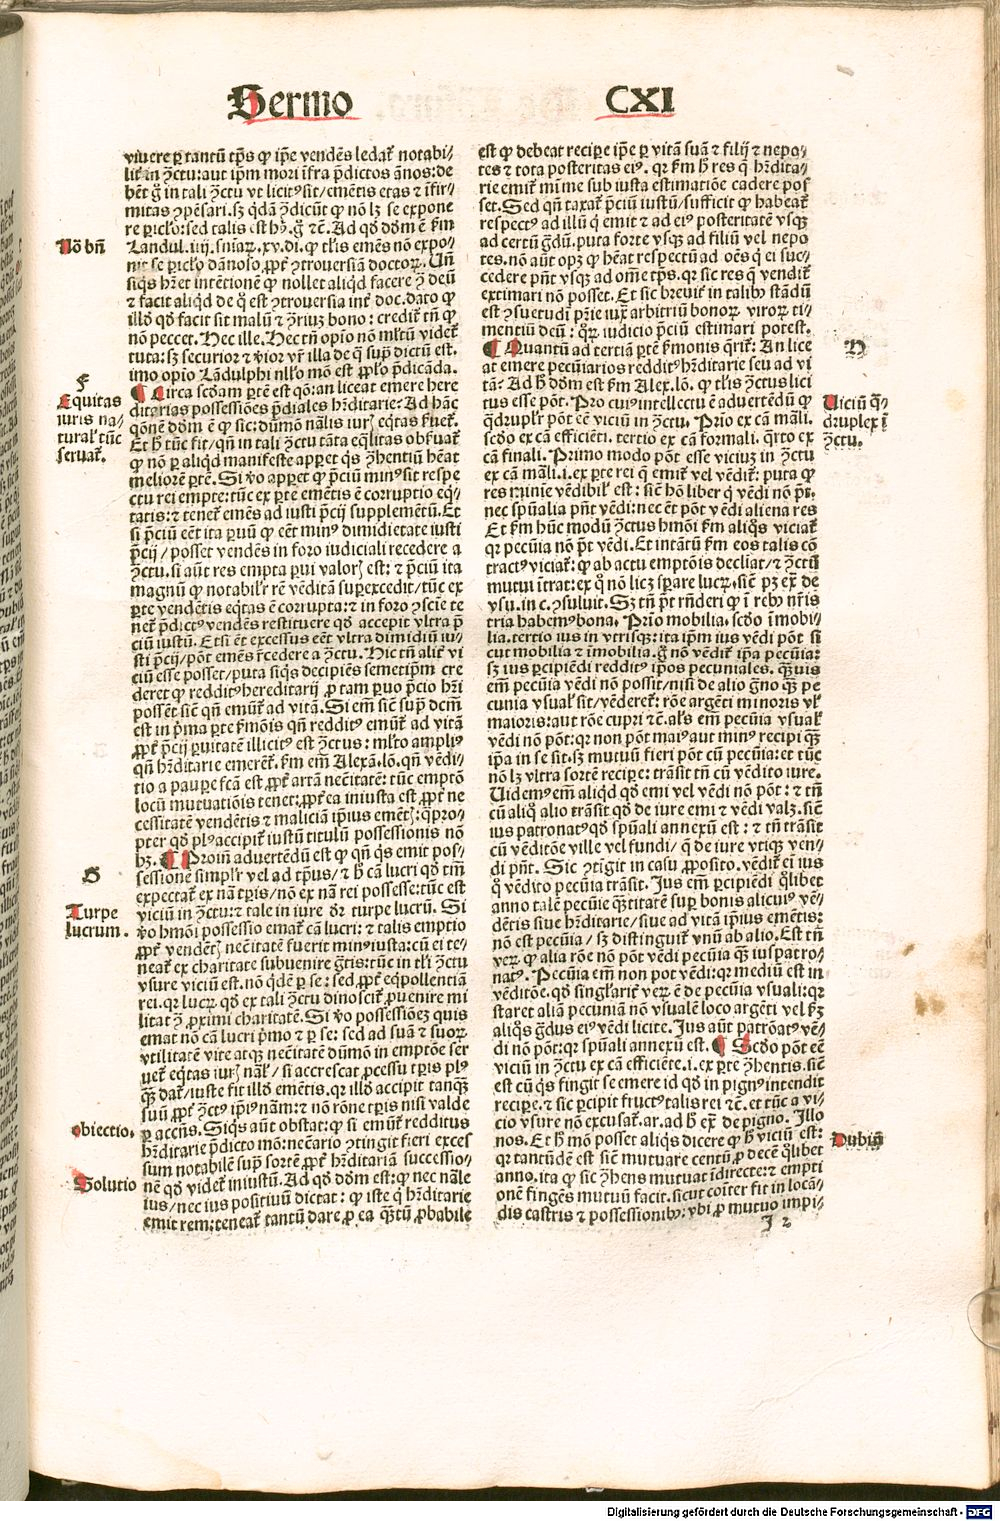 Sermo CXI
viuere ꝑ tantū tp̄s ꝙ ip̄e vendēs ledat᷑ notabi/
lit᷑ in ꝯtctu: aut ip̄m mori īfra p̄dictos ānos: de
bēt ḡ in tali ꝯtctu vt licitꝰ sit/ emētis etas ⁊ īfir/
mitas ꝯpēsari. sꝫ qͥdā ꝯdicūt ꝙ nō lꝫ se expone
re ꝑicl'o: sed talis est hꝫ. ḡ ⁊c̄. Ad qđ dōm ē ẜm
Landul. iiij. sniaꝝ. xv. di. ꝙ tl'is emēs nō expo/
nit se ꝑicl'o dānoso ꝓpt᷑ ꝯtrouersiā doctoꝝ. Vn̄
siqͥs hr̄et intētionē ꝙ nollet aliqd facere ꝯ deū
⁊ facit aliqd de q̄ est ꝯtrouersia int᷑ doc. dato ꝙ
ill'd qđ facit sit malū ⁊ ꝯriuꝫ bono: credit᷑ tn̄ ꝙ
nō peccet. Hec ille. Hec tn̄ opio nō ml'tū videt᷑
tuta: sꝫ securior ⁊ v̄ior vr̄ illa de q̄ sup̄ dictū est.
imo opio Lādulphi null'o mō est ꝓpl'o p̄dicāda.
¶ Circa scđam ꝑtē est qō: an liceat emere here
ditarias possessiōes p̄diales hr̄ditarie? Ad hāc
qōnē dōm ē ꝙ sic: dūmō nālis iurꝭ eqͥtas ẜuet᷑.
Et h̄ tūc fit/ qn̄ in tali ꝯtctu tāta eq̄litas obẜuat᷑
ꝙ nō ꝑ aliqd manifeste apꝑet qͥs ꝯhentiū hēat
meliorē ꝑtē. Si v̄o apꝑet ꝙ p̄ciū minꝰ sit respe
ctu rei empte: tūc ex ꝑte emētis ē corruptio eqͥ/
tatis: ⁊ tenet᷑ emēs ad iusti p̄cij supplemētū. Et
si p̄ciū eēt ita ꝑuū ꝙ eēt minꝰ dimidietate iusti
p̄cij/ posset vendēs in foro iudiciali recedere a
ꝯtctu. si aūt res empta ꝑui valorꝭ est: ⁊ p̄ciū ita
magnū ꝙ notabil'r rē vēditā suꝑexcedit/ tūc ex
ꝑte vendētis eqͥtas ē corrupta: ⁊ in foro ꝯscīe te
net᷑ p̄dictꝰ vendēs restituere qđ accepit vltra p̄
ciū iustū. Et si ēt excessus eēt vltra dimidiū iu/
sti p̄cij/ pōt emēs r̄cedere a ꝯtctu. Hic tn̄ alit᷑ vi
ciū esse posset/ puta siqͥs decipiēs semetip̄m cre
deret ꝙ redditꝰ hereditarij ꝓ tam ꝑuo p̄cio hr̄i
possēt sic̄ qn̄ emūt᷑ ad vitā. Si em̄ sic̄ sup̄ dcm̄
est in p̄ma ꝑte ẜmōis qn̄ redditꝰ emūt᷑ ad vitā
ꝓpt᷑ p̄cij ꝑuitatē illicitꝰ est ꝯtctus: ml'to ampliꝰ
qn̄ hr̄ditarie emerēt᷑. ẜm em̄ Alexā. lō. qn̄ vēdi/
tio a pauꝑe fcā est ꝓpt᷑ artā nec̄itatē: tūc emptō
locū mutuatiōis tenet: ꝓpt᷑ea iniusta est ꝓpt᷑ ne
cessitatē vendētis ⁊ maliciā ip̄ius emētꝭ: qꝓpro/
pter qđ plꝰ accipit᷑ iustū titulū possessionis nō
hꝫ. ¶ Proīn advertēdū est ꝙ qn̄ qͥs emit pos/
sessionē simpl'r vel ad tp̄us/ ⁊ h̄ cā lucri qđ tm̄
expectat᷑ ex nā tꝑis/ nō ex nā rei possesse: tūc est
viciū in ꝯtctu: ⁊ tale in iure dr̄ turpe lucrū. Si
v̄o hmōi possessio emat᷑ cā lucri: ⁊ talis emptio
ꝓpt᷑ vendētꝭ nec̄itatē fuerit minꝰ iusta: cū ei te/
neat᷑ ex charitate subuenire gr̄tis: tūc in tl'i ꝯtctu
vsure viciū est. nō qͥdē ꝑ se: sed ꝓpt᷑ eqͥpollentiā
rei. qꝛ lucꝝ qđ ex tali ꝯtctu dinoscit᷑ ꝓuenire mi
litat ꝯ ꝓximi charitatē. Si v̄o possessiōeꝫ quis
emat nō cā lucri p̄mo ⁊ ꝑ se: sed ad suā ⁊ suoꝝ
vtilitatē vite atqꝫ nec̄itatē dūmō in emptōe ser
uet᷑ eqͥtas iurꝭ nāl'/ si accrescat ꝓcessu tꝑis plꝰ
qꝫ dat᷑/ iuste fit ill'd emētis. qꝛ ill'd accipit tanqꝫ
suū ꝓpt᷑ ꝯtctꝰ ip̄iꝰ nām: ⁊ nō rōne tꝑis nisi valde
ꝑ accn̄s. Siqͥs aūt obstat: ꝙ si emūt᷑ redditus
hr̄ditarie p̄dicto mō: nec̄ario ꝯtingit fieri exces
sum notabilē sup̄ sortē ꝓpt᷑ hr̄ditariā successio/
nē qđ videt᷑ iniustū. Ad qđ dōm est: ꝙ nec nāle
ius/ nec ius positiuū dictat: ꝙ iste qͥ hr̄ditarie
emit rem: teneat᷑ tantū dare ꝓ ea qꝫtū ꝓbabile
Nō bn̄
F
Equitas
iuris na/
tural' tūc
seruat᷑.
G
Turpe
lucrum.
Obiectio.
Solutio
est ꝙ debeat recipe ip̄e ꝑ vitā suā ⁊ filij ⁊ nepo/
tes ⁊ tota posteritas eiꝰ. qꝛ ẜm h̄ res q̄ hr̄dita/
rie emit᷑ mīme sub iusta estimatiōe cadere pos
set. Sed qn̄ taxat᷑ p̄ciū iustū/ sufficit ꝙ habeat᷑
respectꝰ ad illū qͥ emit ⁊ ad eiꝰ posteritatē vsqꝫ
ad certū gͣdū. puta forte vsqꝫ ad filiū vel nepo
tes. nō aūt opꝫ ꝙ hēat respectū ad oēs qͥ ei suc/
cedere pn̄t vsqꝫ ad om̄e tp̄s. qꝛ sic res q̄ vendit᷑
extimari nō posset. Et sic breuit᷑ in talibꝫ stādū
est ꝯsuetudi prīe iux̄ arbitriū bonoꝝ viroꝝ ti/
mentiū deū: qͦꝝ iudicio p̄ciū estimari potest.
¶ Quantū ad tertiā ꝑtē ẜmonis qͥrit᷑: An lice
at emere pecūiarios redditꝰ hr̄ditarie seu ad vi
tā? Ad h̄ dōm est ẜm Alex. lō. ꝙ tl'is ꝯtctus lici
tus esse pōt. Pro cuiꝰ intellectu ē advertēdū ꝙ
qͣdrupl'r pōt eē viciū in ꝯtctu. Prīo ex cā māli.
scđo ex cā efficiēti. tertio ex cā formali. qͣrto ex
cā finali. Primo modo pōt esse viciuꝫ in ꝯtctu
ex cā māli. i. ex ꝑte rei q̄ emit᷑ vel vēdit᷑: puta ꝙ
res minie vēdibil' est: sic̄ hō liber qͥ vēdi nō pt̄.
nec spūalia pn̄t vēdi: nec ēt pōt vēdi aliena res
Et ẜm hūc modū ꝯtctus hmōi ẜm aliqͦs viciat᷑
qꝛ pecūia nō pōt vēdi. Et intātū ẜm eos talis cō
tractꝰ viciat᷑: ꝙ ab actu emptōis decliat/ ⁊ ꝯtctū
mutui itrat: ex qͦ nō licꝫ sꝑare lucꝝ. sic̄ pꝫ ex̄ de
vsu. in c. ꝯsuluit. Sꝫ tn̄ pt̄ rn̄deri ꝙ ī rebꝫ nr̄is
tria habemꝰ bona. Prīo mobilia. scđo īmobi/
lia. tertio ius in vtrisqꝫ: ita ip̄m ius vēdi pōt si
cut mobilia ⁊ īmobilia. ḡ nō vēdit᷑ ip̄a pecūia:
sꝫ ius ꝑcipiēdi redditꝰ ip̄os pecuniales. qꝫuis
em̄ pecūia vēdi nō possit/ nisi de alio gn̄o qꝫ pe
cunia vsual' sit/ vēderet᷑: rōe argēti minoris vl'
maioris: aut rōe cupri ⁊c̄. al's em̄ pecūia vsual'
vēdi nō pōt: qꝛ non pōt maiꝰ aut minꝰ recipi qꝫ
ip̄a in se sit. sꝫ mutuū fieri pōt cū pecūia: et tūc
nō lꝫ vltra sortē recipe: trāsit tn̄ cū vēdito iure.
Uidemꝰ em̄ aliqd qđ emi vel vēdi nō pōt: ⁊ tn̄
cū aliqͦ alio trāsit qđ de iure emi ⁊ vēdi valꝫ. sic̄
ius patronatꝰ qđ spūali annexū est: ⁊ tn̄ trāsit
cū vēditōe ville vel fundi/ q̄ de iure vtiqꝫ ven/
di pn̄t. Sic ꝯtigit in casu ꝓposito. vēdit᷑ ei ius
qͦ vēdito pecūia trāsit. Ius em̄ ꝑcipiēdi qͦlibet
anno talē pecūie qꝫtitatē suꝑ bonis alicuiꝰ vē/
dētis siue hr̄ditarie/ siue ad vitā ip̄ius emētis:
nō est pecūia/ sꝫ distinguit᷑ vnū ab alio. Est tn̄
veꝝ ꝙ alia rōe nō pōt vēdi pecūia qꝫ iuspatro/
natꝰ. Pecūia em̄ non pot vēdi: qꝛ mediū est in
vēditōe. qđ singl'arit᷑ veꝝ ē de pecūia vsuali: qꝛ
staret aliā pecuniā nō vsualē loco argēti vel ẜꝫ
aliqͦs gͣdus eiꝰ vēdi licite. Ius aūt patrōatꝰ vē/
di nō pōt: qꝛ spūali annexū est. ¶ Scđo pōt eē
viciū in ꝯtctu ex cā efficiēte. i. ex ꝑte ꝯhentis. sic̄
est cū qͥs fingit se emere id qđ in pignꝰ intendit
recipe. ⁊ sic ꝑcipit fructꝰ talis rei ⁊c̄. et tūc a vi/
cio vsure nō excusat᷑. ar. ad h̄ ex̄ de pigno. Illo
nos. Et h̄ mō posset aliqͥs dicere ꝙ h̄ viciū est:
qꝛ tantūdē est sic̄ mutuare centū ꝓ decē qͦlibet
anno. ita ꝙ sic ꝯhens mutuat īdirecte: ⁊ empti
onē fingēs mutuū facit. sicut cōiter fit in locā/
dis castris ⁊ possessionibꝫ: vbi ꝓ mutuo impi/
H
Uiciū qͣ/
druplex ī
ꝯtctu.
Dubiū
I 2
Digitalisierung gefördert durch die Deutsche Forschungsgemeinschaft - DFG